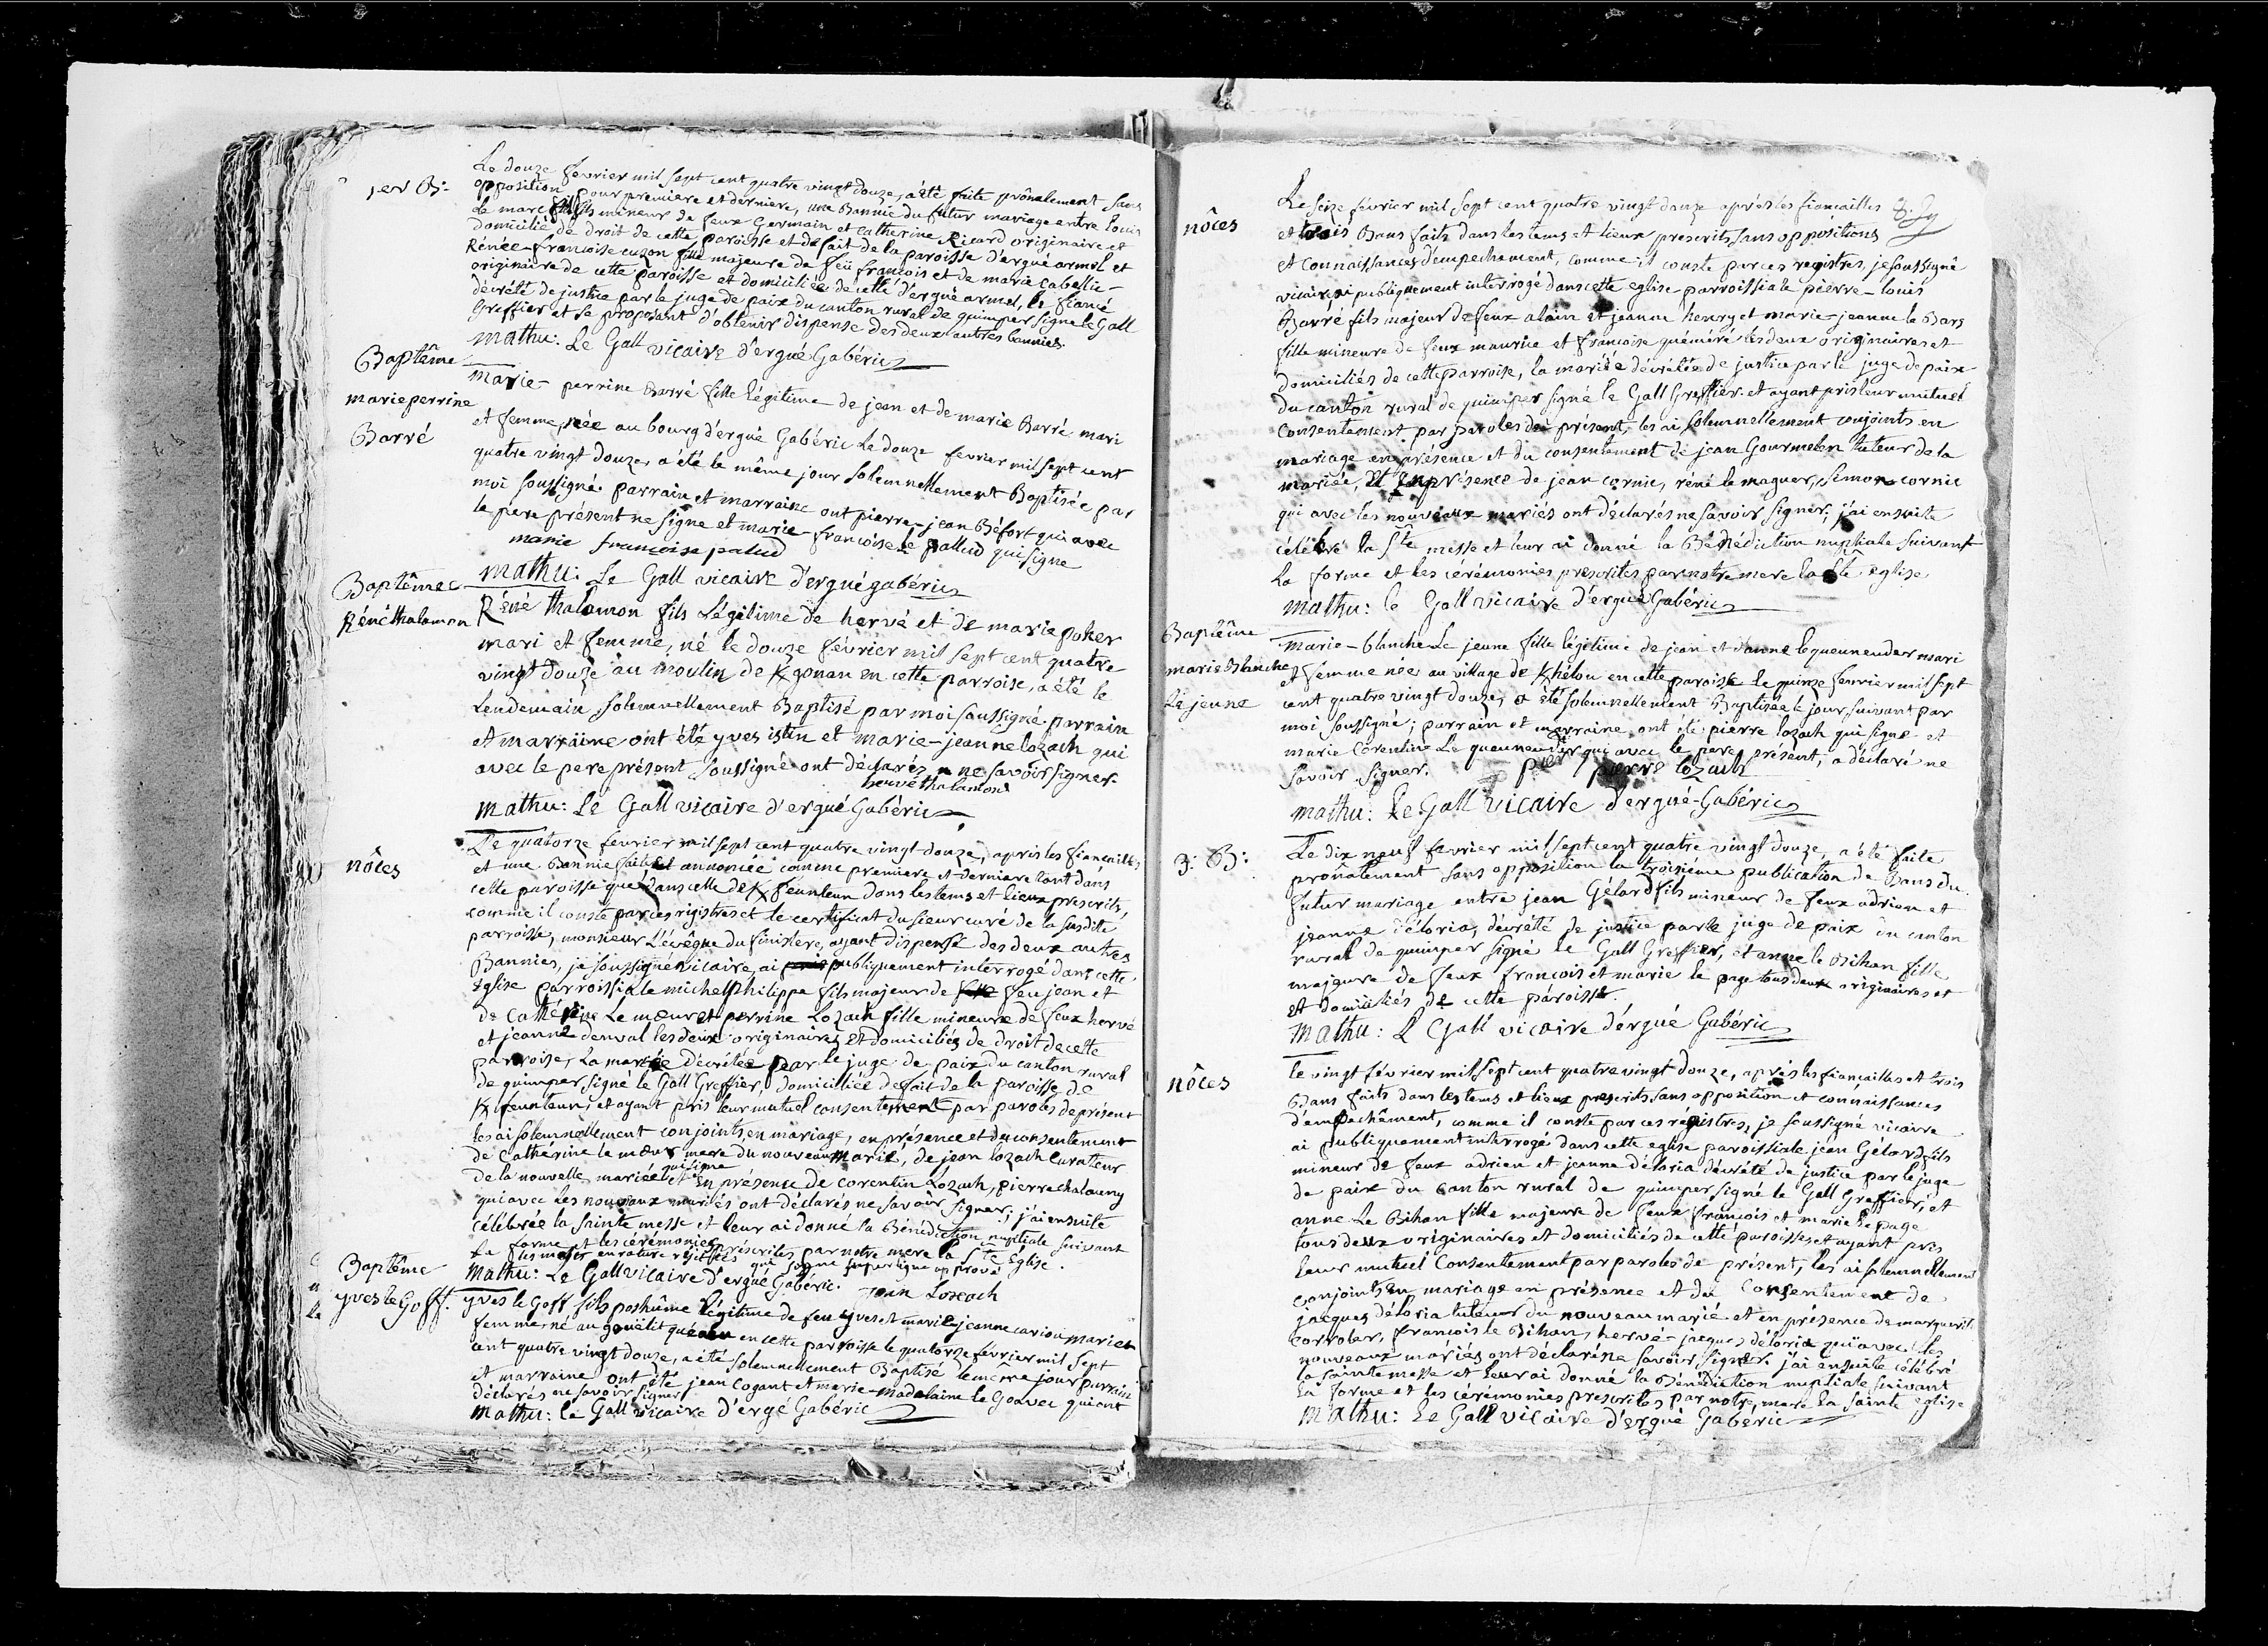 1er B:
Le douze fevrier mil sept cent quatre vingt douze, a été faite prônalement sans
opposition pour premiere et derniere, une Bannie du futur mariage entre Louis
Le marc fils mineur de feux Germain et Catherine Ricard originaire et
domicilié de droit de cette paroisse et de fait de la paroisse d'ergué armel et
Rénée-francoise cuzon fille majeure de feü francois et de marie Cabellic-
originaire de cette paroisse et domiciliée de celle d'ergué armel, le fiancé
décrété de justice par le juge de paix du canton rural de quimper signé le Gall
Greffier et se proposant d'obtenir dispense des deux autres bannies.
Mathu: Le Gall vicaire d'ergué Gabéric
Baptême
marie perrine
Barré
Marie-perrine Barré fille légitime de jean et de marie Barré mari
et femme, née au bourg d'ergué Gabéric Le douze fevrier mil sept cent
quatre vingt douze, a été le même jour solemnellement Baptisée par
moi soussigné. parrain et marraine ont pierre-jean Béfort qui avec
le pere présent ne signe et marie-francoise le pallud qui signe
marie francoise palud
Mathu: Le Gall vicaire d'ergué gabéric
Baptême
Réné thalamon
Réné thalamon fils Légitime de hervé et de marie poher
mari et femme, né le douze février mil sept cent quatre
vingt douze au moulin de K/gonan en cette parroise, a été le
Lendemain solemnellement Baptisé par moi soussigné. parrain
et marraine ont été yves istin et marie-jeanne lozach qui
avec le pere présent soussigné ont déclarés ne savoir signer.
hervé thalamon
Mathu: Le Gall vicaire d'ergué Gabéric
nôces
Le quatorze fevrier mil sept cent quatre vingt douze, apris les fiancailles
et une Bannie faite et annoncée comme premiere et derniere tant dans
cette paroisse que dans celle de K/feunteun dans les tems et lieux prescrits,
comme il conste par ces régistres et le certificat du sieur curé de la susdite
parroisse, monsieur L'évêque du finistere, ayant dispensé des deux autres
Bannies, je soussigné vicaire, ai publiquement interrogé dans cette
Eglise parroissiale michel philippe fils majeur de feu jean et
de Cathérine Le mœur et perrine Lozach fille mineure de feux hervé
et jeanne denval les deux originaires et domiciliés de droit de cette
parroise, La mariée décrétée par le juge de paix du canton rural
de quimper signé le Gall Greffier, domicilliée de fait de la paroisse de
K/feunteun; et ayant pris leur mutuel consentement par paroles de présent
les ai solemnellement conjoints en mariage, en présence et du consentement
de Cathérine le mœur mere du nouveau marié, de jean lozach curateur
qui signe
de la nouvelle mariée et en présence de Corentin Lozach, pierre chalauny
qui avec les nouveaux mariés ont déclarés ne savoir signer; j'ai ensuite
célébrée la sainte messe et leur ai donné la Bénédiction nuptiale suivant
la forme et les cérémonies préscrites par notre mere la ste Église.
les mots en rature réjettés qui signe interligne approuvé
Mathu: Le Gall vicaire d'ergué Gabéric. jean Lozeach
Baptême
yves le Goff.
yves le Goff fils posthûme légitime de feu yves et marie jeanne cariou mari et
femme, né au en cette parroisse le quatorze février mil sept
cent quatre vingt douze, a été solemnellement Baptisé le même jour parrain
et marraine ont été jean Cogant et marie-madelaine le Goavec qui ont
déclarés ne savoir signer
Mathu: Le Gall vicaire d'ergé Gabéric
nôces
Le seize février mil sept cent quatre vingt douze après les fiancailles
et trois Bans faits dans les tems et lieux prescrits, sans oppositions
et connaissances d'empechement, comme il conste par ces registres, je soussigné
vicaire, ai publiquement interrogé dans cette eglise parroissiale pièrre-louis
Barré fils majeur de feux alain et jeanne henry et marie-jeanne le Bars
fille mineure de feux maurice et francoise quéméré les deux originaires et
domiciliés de cette parroise, la mariée décrétée de justice par le juge de paix
du canton rural de quimper signé le Gall Greffier. et ayant pris leur mutuel
consentement par paroles de présent, les ai solemnellement conjoints en
mariage en présence et du consentement de jean Gourmelen tuteur de la
mariée, et en présence de jean cornic, réné le maguer, simon cornic
qui avec les nouveaux mariés ont déclarés ne savoir signer; j'ai ensuite
célébré la ste messe et leur ai donné la Bénédiction nuptiale suivant
la forme et les cérémonies prescrites par notre mere la ste eglise.
Mathu: le Gall vicaire d'ergué Gabéric
Baptême
marie Blanche
Le jeune
Marie-blanche Le jeune fille légitime de jean et d'anne le queneuder mari
et femme née au village de K/hélou en cette paroisse le quinze fevrier mil sept
cent quatre vingt douze, a été solemnellement Baptisée le jour suivant par
moi soussigné; parrain et marraine ont été pierre lozach qui signe et
marie Corentine Le queneuder qui avec le pere présent, a déclaré ne
savoir signer. pierre lozach
Mathu: Le Gall vicaire d'ergué-Gabéric
3: B:
Le dix neuf fevrier mil sept cent quatre vingt douze, a été faite
prônalement sans opposition la troisiéme publication de Bans du
futur mariage entre jean Gélard fils mineur de feux adrien et
jeanne déloria, décrété de justice par le juge de paix du canton
rural de quimper signé le Gall Greffier, et anne le Bihan fille
majeure de feux francois et marie le page tous deux originaires et
et domiciliés de cette paroisse.
Mathu: L Gall vicaire d'ergué Gabéric
nôces
le vingt février mil sept cent quatre vingt douze, après les fiançailles et trois
Bans faits dans les tems et lieux prescrits sans opposition et connaissances
d'empechêment, comme il conste par ces régistres, je soussigné vicaire
ai publiquement interrogé dans cette eglise paroissiale jean Gélard fils
mineur de feux adrien et jeanne déloria décrété de justice par le juge
de paix du canton rural de quimper signé le Gall Greffier, et
anne Le Bihan fille majeure de feux francois et marie le page
tous deux originaires et domiciliés de cette paroisse, et ayant pris
leur mutuel consentement par paroles de présent, les ai solemnellement
conjoints en mariage en présence et du consentement de
jacques déloria tuteur du nouveau marié et en présence de marguerite
corroler, francois le Bihan, hervé-jacques déloria qui avec les
nouveaux mariés ont déclaré ne savoir signer. j'ai ensuite célébré
la sainte messe et leur ai donné la Bénédiction nuptiale suivant
la forme et les cérémonies prescrites par notre mere la sainte eglise
Mathu: Le Gall vicaire d'ergué Gabéric